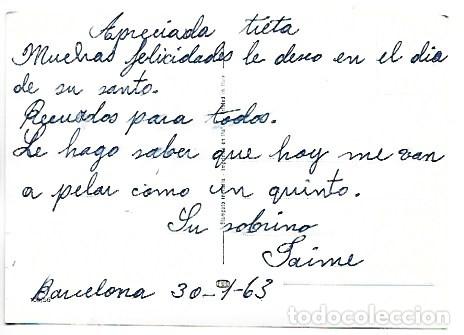 Apreciada tieta
Muchas felicidades le deseo en el dia
de su santo.
Recuerdos para todos.
Le hago saber que hoy me van
a pelar como un quinto.
Su sobrino
Jaime
Barcelona 30-1-63
todocoleccion